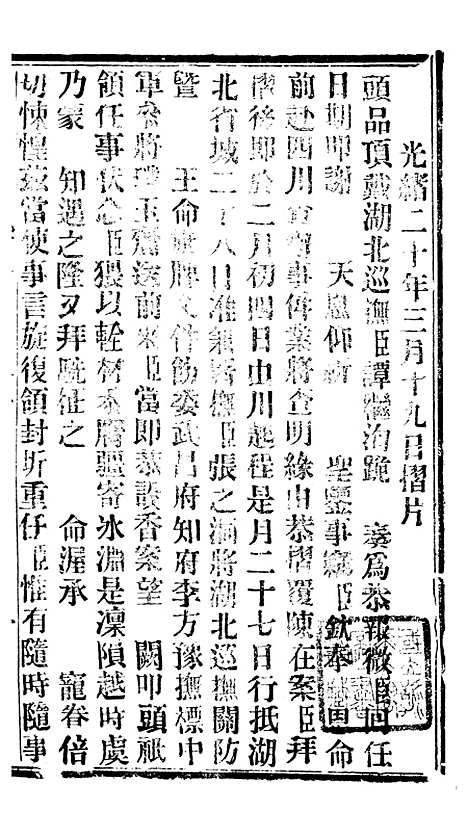 光緒二十年三月十九日摺片
頭品頂戴湖北巡撫臣譚繼洵跪 奏為恭報微臣回任
日期叩謝 天恩仰祈 聖鑒事竊臣欽奉 命
前赴四川查辦事件業將查明緣由恭摺覆陳在案臣拜
摺後即於二月初四日由川起程是月二十七日行抵湖
北省城二十八日准兼署撫臣張之洞將湖北巡撫關防
暨 王命旗牌文件飭委武昌府知府李方豫撫標中
軍參將 玉 送前來臣當即恭設香案望 闕叩頭祗
領任事伏念臣猥以輇材忝膺疆寄冰淵是凜隕越時虞
乃蒙 知遇之隆叉拜駪征之 命渥承 寵眷倍
切悚惶茲當使事言旋復領封圻重任臣惟有隨時隨事